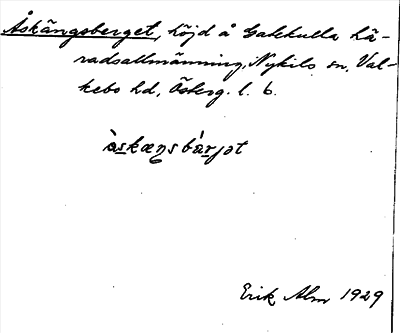 Åskängsberget, höjd å Galtkulla hä-
radsallmänning, Nykils sn, Val-
kebo hd, Österg. l. b.
àskæŋsbàrjət
Erik Alm 1929